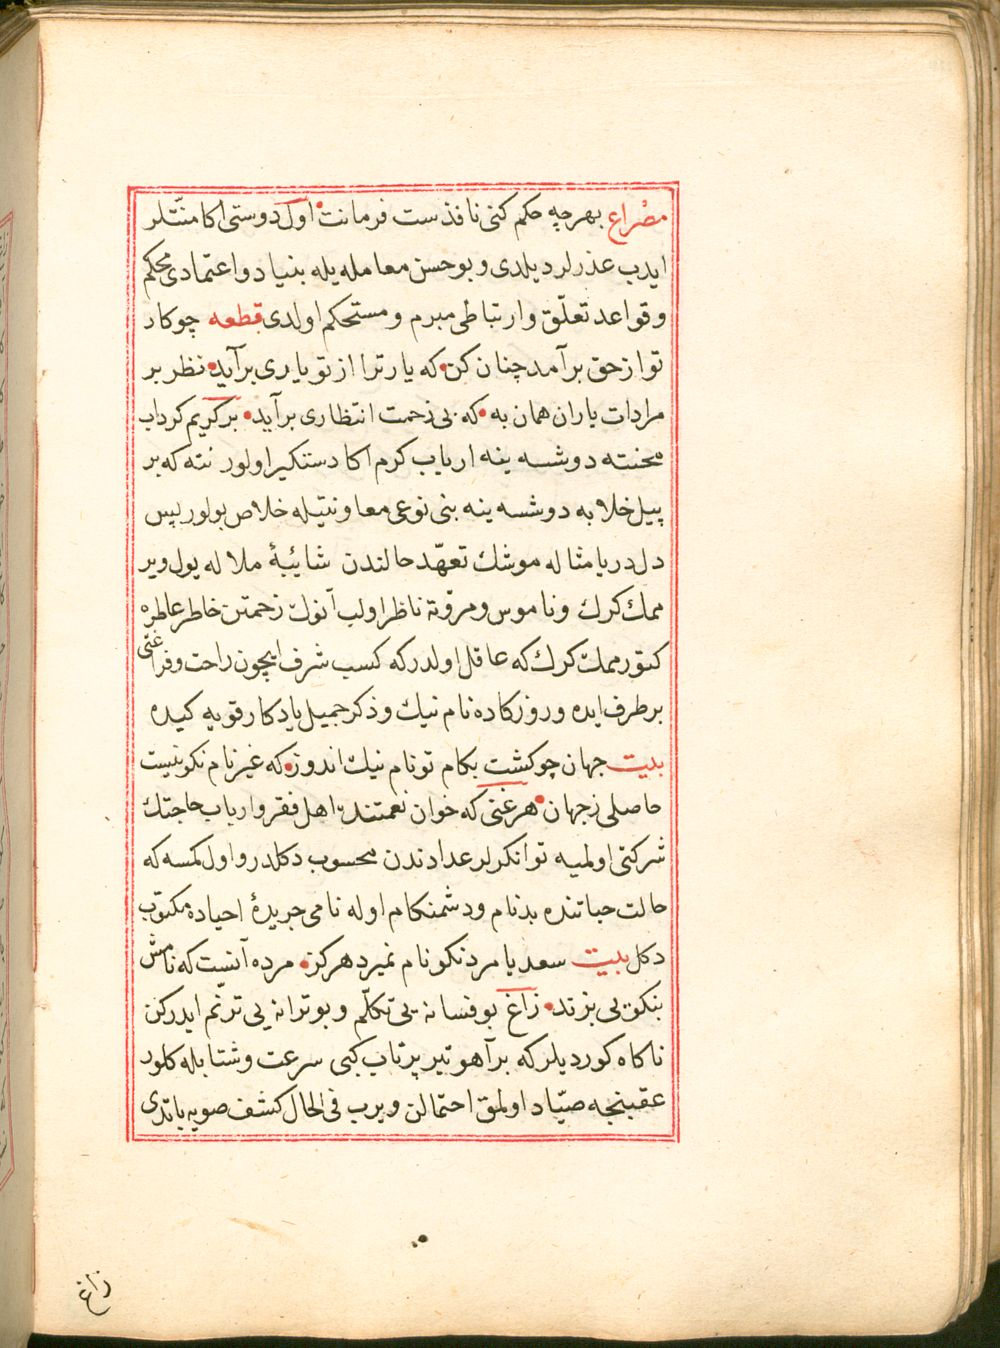 مصراع بهرچه حکم کنی نافذست فرمانت اول دوستی اکا منّتلر
ایدب عذرلر دیلدی و بو حسن معامله یله بنیاد و اعتمادی محکم
و قواعد تعلّق و ارتباطی مبرم و مستحکم اولدی قطعه چو کار
تو از حق برآمد چنان کن که یار ترا از تو یاری برآید نظر بر
مرادات یاران همان به که بی زحمت انتظاری برآید بر کریم کرداب
محنته دوشسه ینه ارباب کرم اکا دستکیر اولور نته که بر
پیل خلابه دوشسه ینه بنی نوعی معاونتیله خلاص بولور پس
دل دریا مثاله موشك تعهّد حالندن شائبهٔ ملاله یول ویر
ممك کرك و ناموس و مروّته ناظر اولب آنوك زحمتن خاطر عاطره
کتورممك کرك که عاقل اولدر که کسب شرف ایچون راحت و فراغتی
برطرف ایده و روزکاده نام نیك و ذکر جمیل یادکار قویه کیده
بیت جهان چو کشت بکام تو نام نیك اندوز که غیر نام نکو نیست
حاصلی ز جهان هر غنی که خوان نعمتنده اهل فقر و ارباب حاجتك
شرکتی اولمیه توانکرلر عدادندن محسوب دکلدر و اول کمسه که
حالت حیاتنده بدنام و دشمنکام اوله نامی جریدهٔ احیاده مکتوب
دکل بیت سعدیا مرد نکونام نمیرد هرکز مرده آنست که نامش
بنکویی نبرند زاغ بو فسانه یی تکلّم و بو ترانه یی ترنّم ایدرکن
ناکاه کوردیلر که بر آهو تیر پرتاب کبی سرعت و شتابله کلور
عقبنجه صیّاد اولمق احتمالن ویرب فی الحال کشف صویه باتدی
زاغ